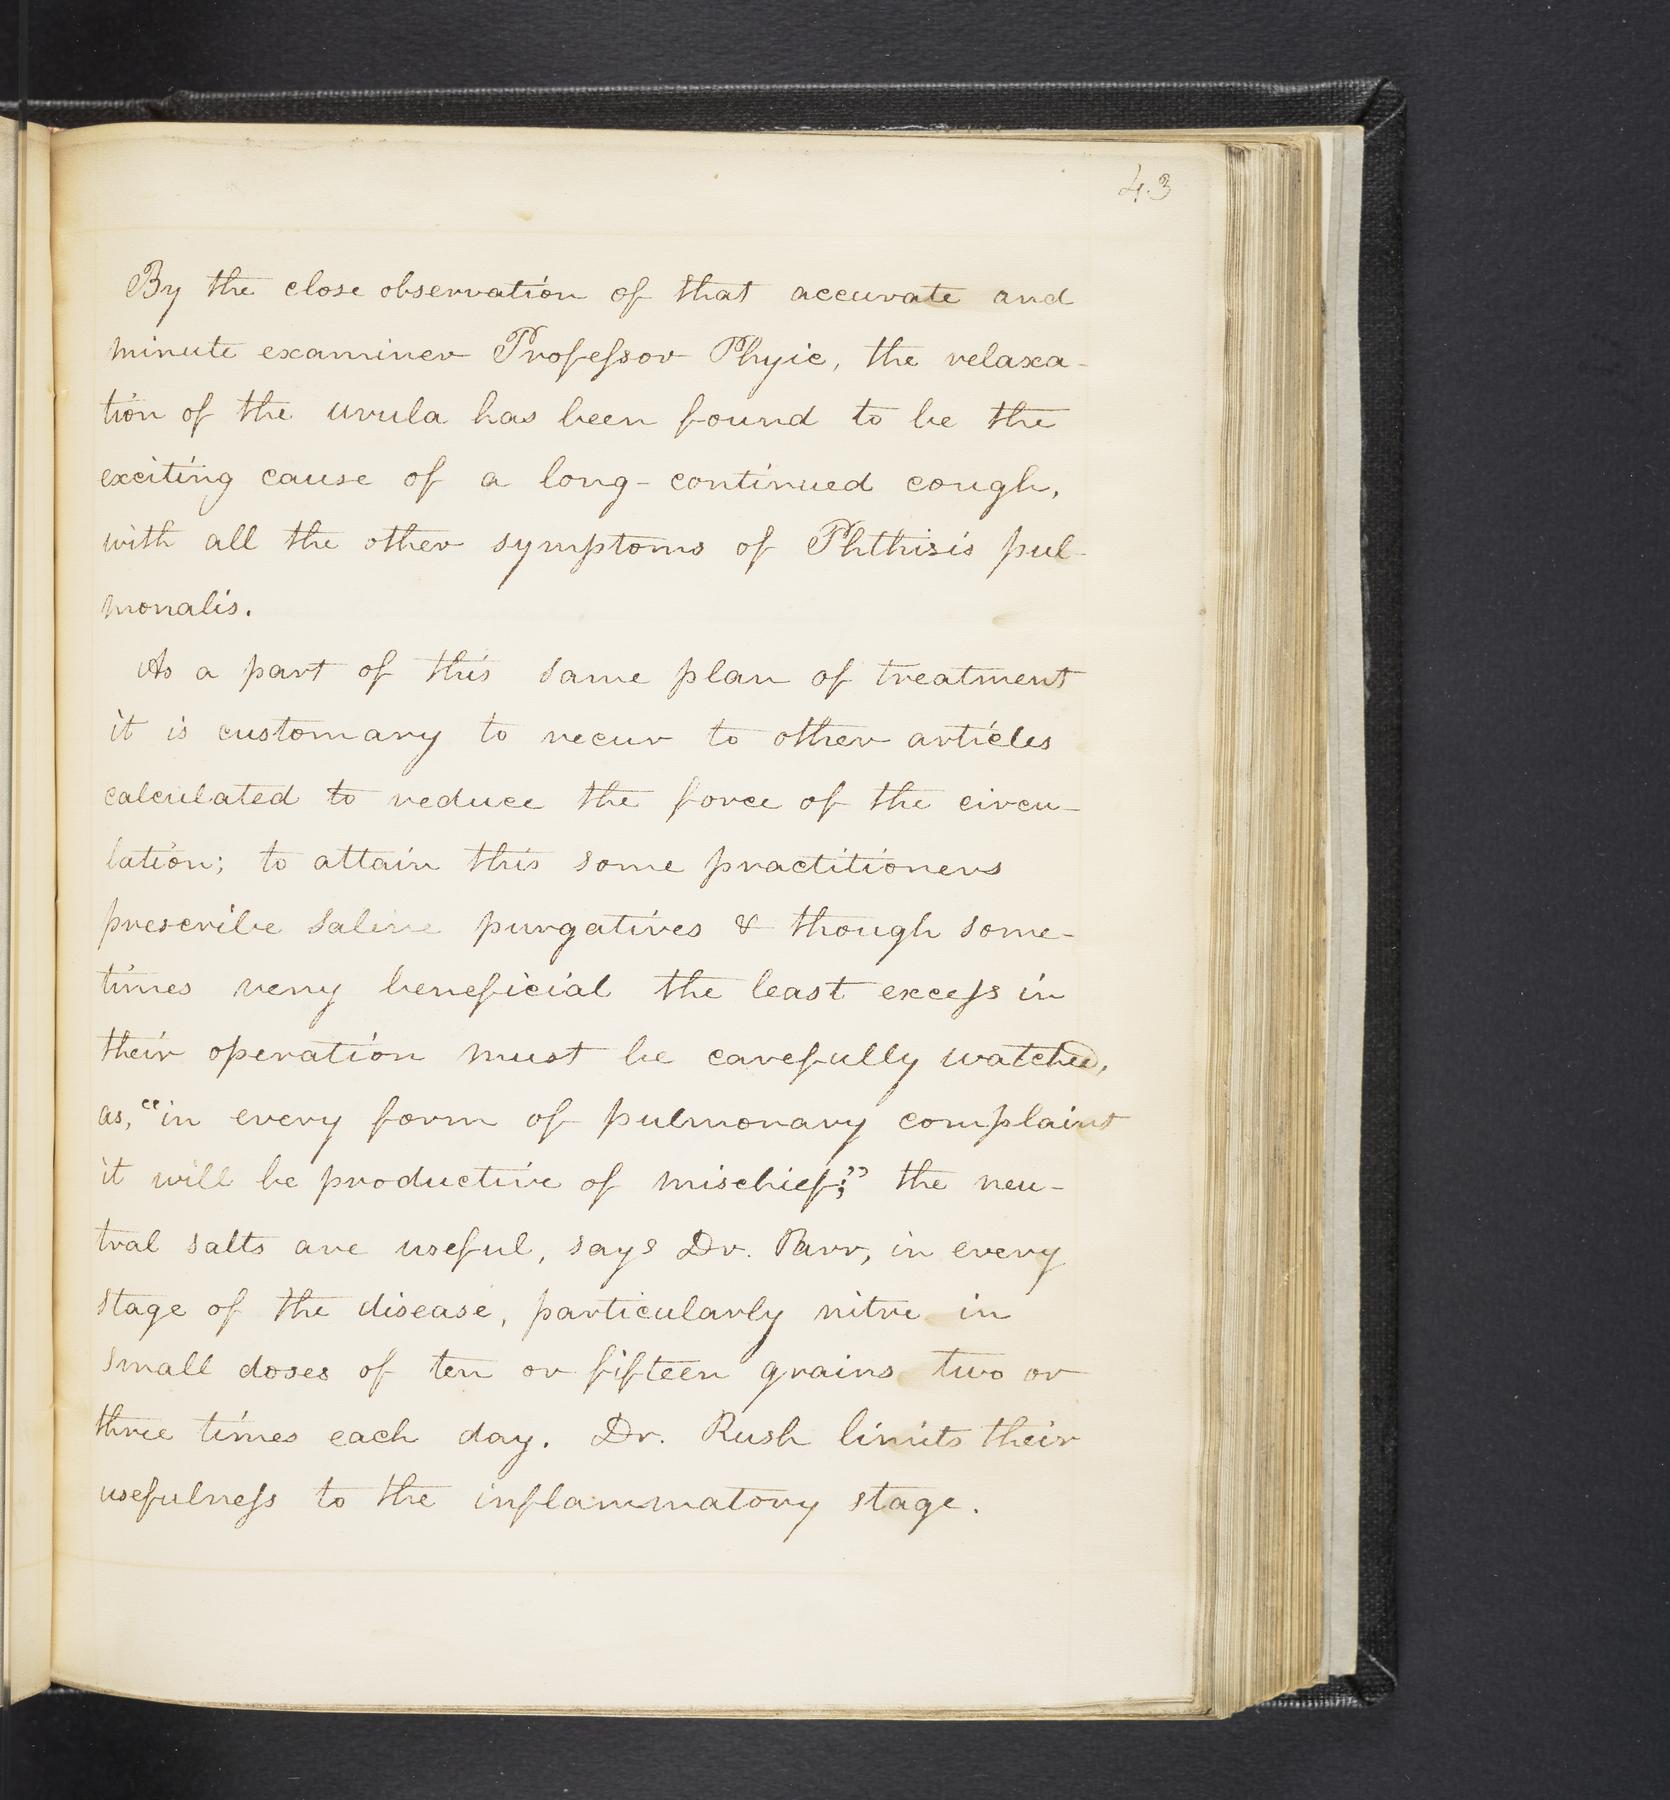 43
By the close observation of that accurate and
minute examiner Professor Phyic, the relaxa-
tion of the uvula has been found to be the
exciting cause of a long-continued cough,
with all the other symptoms of Phthisis pul-
monalis.
As a part of this same plan of treatment
it is customary to recur to other articles
calculated to reduce the force of the circu-
lation; to attain this some practitioners
prescribe saline purgatives & though some-
times very beneficial the least excess in
their operation must be carefully watched,
as, "in every form of pulmonary complaint
it will be productive of mischief;" the neu-
tral salts are useful, says Dr. Parr, in every
stage of the disease, particularly nitre in
small doses of ten or fifteen grains two or
three times each day. Dr. Rush limits their
usefulness to the inflammatory stage.